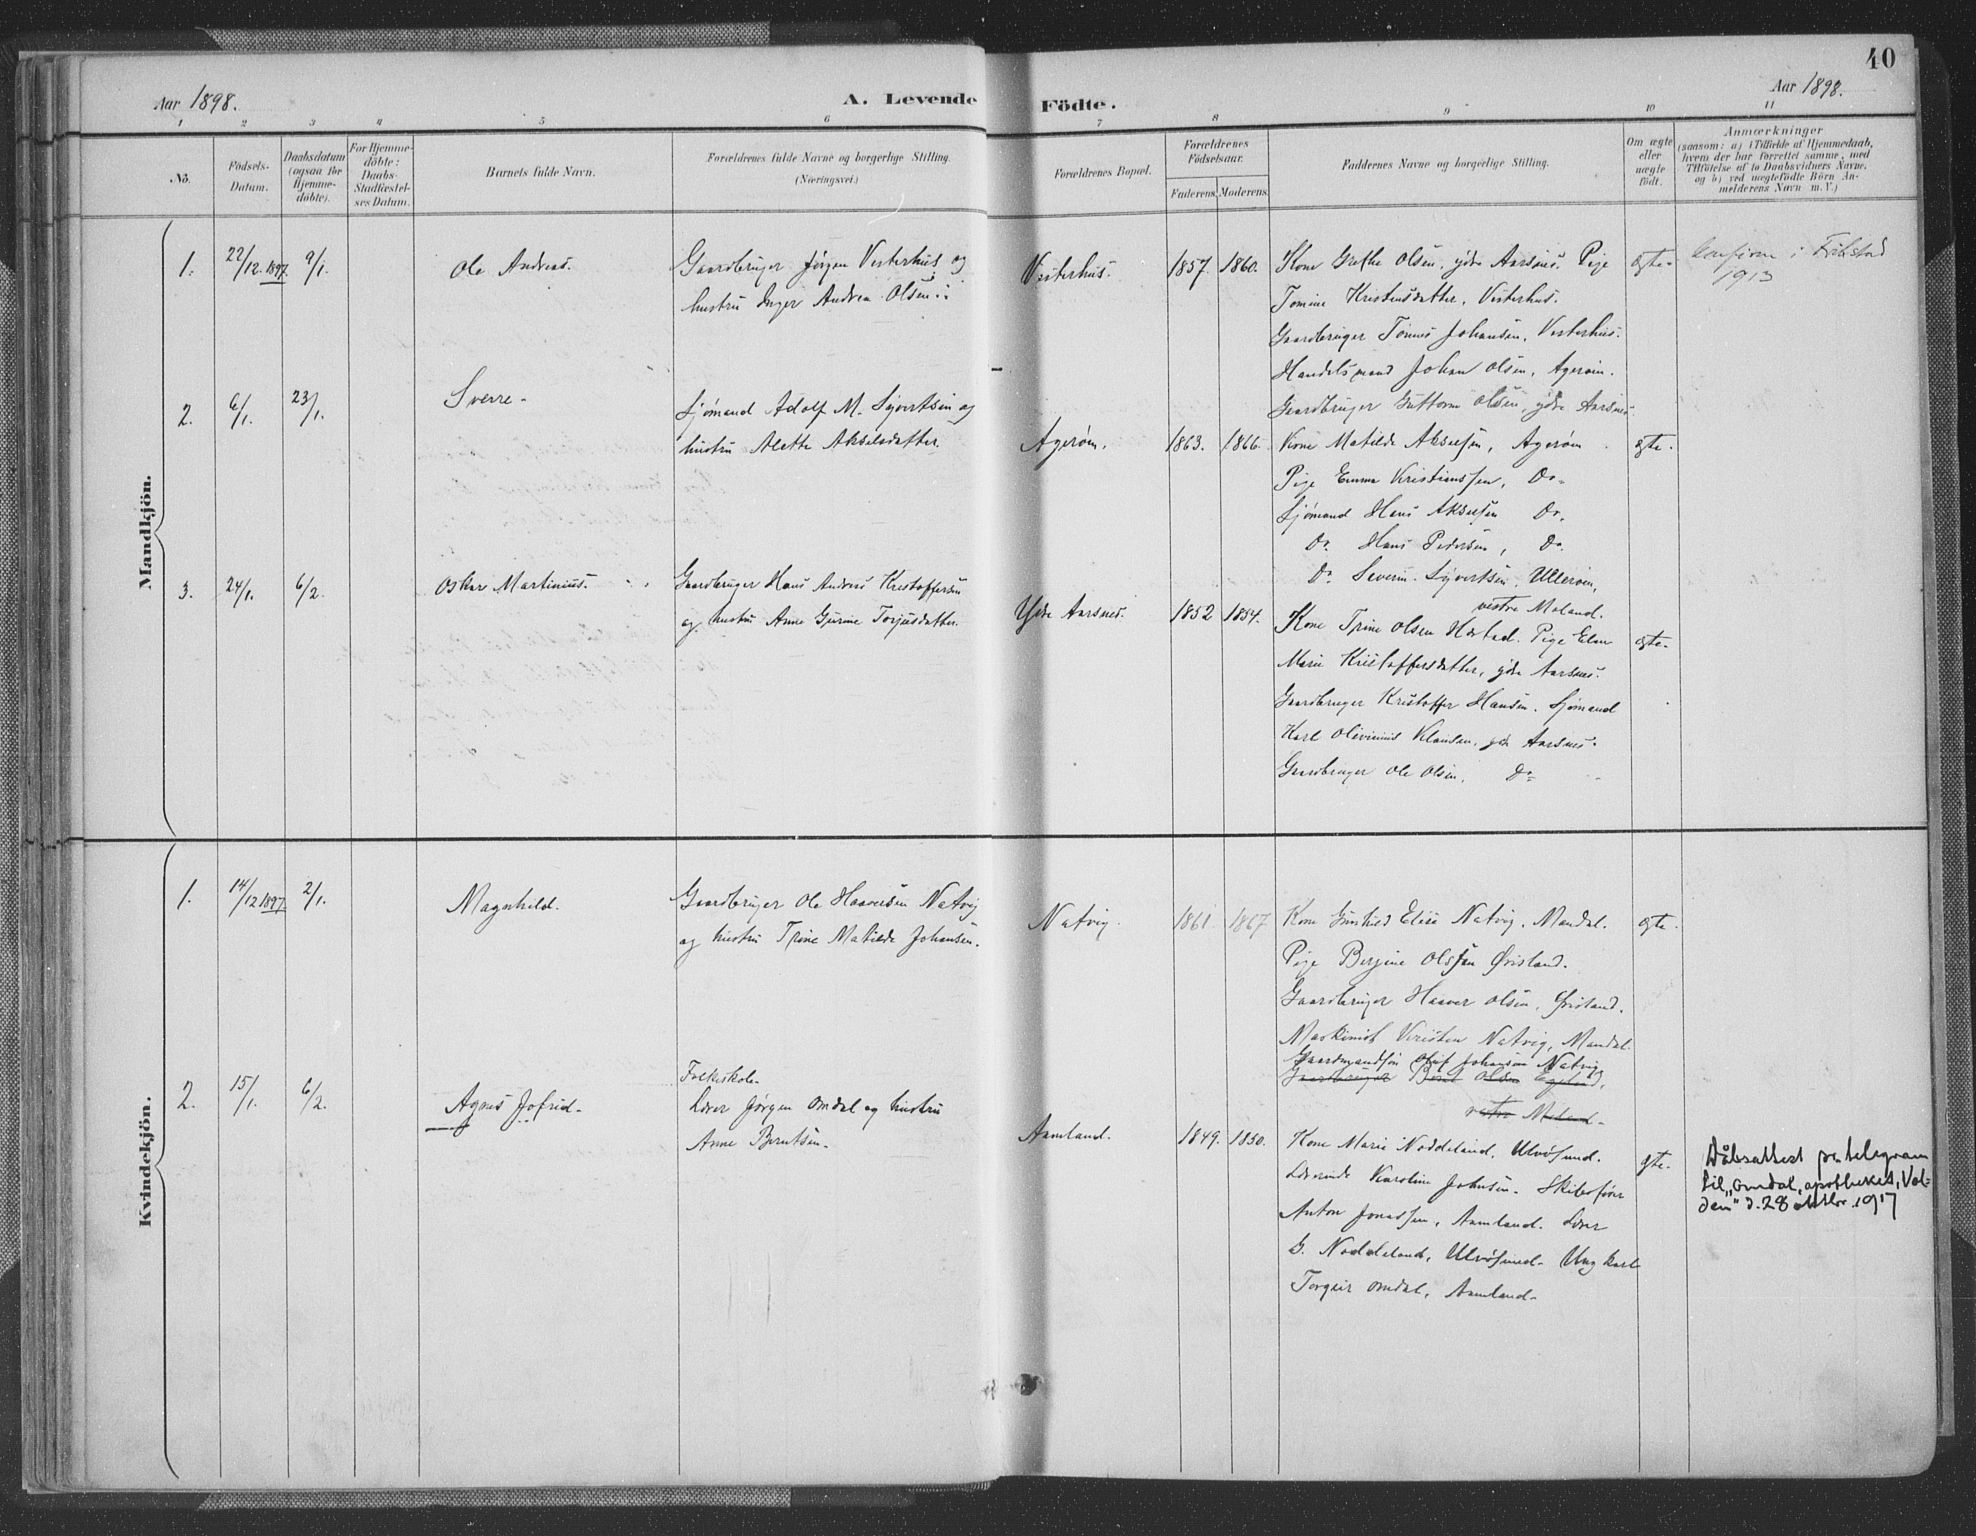 40
Aar 1898. A. Levende Födte. Aar 1898.
1 2 3 4 5 6 7 8 9 10 11
No.
Födsels-
Datum.
Daabsdatum
(ogsaa for
Hjemme-
döbte).
For Hjemme-
döbte:
Daabs-
Stadfæstel-
ses Datum.
Barnets fulde Navn.
Forældrenes fulde Navne og borgerlige Stilling.
(Næringsvei.)
Forældrenes Bopæl.
Forældrenes
Födselsaar.
Faderens. Moderens.
Faddernes Navne og borgerlige Stilling.
Om ægte
eller
uægte
födt.
Anmærkninger
(saasom: a) i Tilfælde af Hjemmedaab,
hvem der har forrettet samme, med
Tilföielse af to Daabsvidners Navne,
og b) ved uægtefödte Börn An-
melderens Navn m. V.)
Mandkjön.
1. 22/12.1897. 9/1. Ole Andreas.
Gaardbruger Jørgen Vesterhus og
hustru Inger Andrea Olsen.
Vesterhus. 1857. 1860.
Kone Grethe Olsen, ydre Aarsnes. Pige
Tomine Kristensdatter, Vesterhus.
Gaardbruger Tønnes Johansen, Vesterhus.
Handelsmand Johan Olsen, Agerøen.
Gaardbruger Guttorm Olsen, ydre Aarsnes
ægte.
konfirm. i
1913
2. 6/1. 23/1. Sverre.
Sjømand Adolf M. Syvertsen og
hustru Alette Akselsdatter.
Agerøen. 1863. 1866.
Kone Matilde Akselsen, Agerøen
Pige Emma Kristianssen, Do.
Sjømand Hans Akselsen Do.
Do. Hans Pedersen, Do.
Do. Severin Syvertsen, Ullerøen,
vestre Moland.
ægte.
3. 24/1. 6/2. Oskar Martinius.
Gaardbruger Hans Andreas Kristoffersen
og hustru Anne Gurine Torjusdatter.
Ydre Aarsnes. 1852 1854.
Kone Trine Olsen Hæstad. Pige Elen
Marie Kristoffersdatter, ydre Aarsnes.
Gaardbruger Kristoffer Hansen. Sjømand
Karl Olivinius Klausen, ydre Aarsnes.
Gaardbruger Ole Olsen, Do
ægte.
Kvindekjön.
1. 14/12 1897. 2/1. Magnhild.
Gaardbruger Ole Haaversen Natvig
og hustru Trine Matilde Johansen.
Natvig. 1861. 1867
Kone Gunhild Elise Natvig, Mandal.
Pige Bergine Olssen Øvsland.
Gaardbruger Haaver Olsen, Øvsland.
Maskinist Kristen Natvig, Mandal.
Gaardmandssøn Oluf Johansen Natvig
Gaardbruger Bent Olsen
vestre Moland.
ægte.
2. 15/1. 6/2. Agnes Jofrid.
Folkeskole-
lærer Jørgen Omdal og hustru
Anne Berntsen.
Aamland. 1849. 1850.
Kone Marie Noddeland, Ulvøsund.
Lærerinde Karoline Johnsen. Skibsfører
Anton Jonassen, Aamland. Lærer
G. Noddeland, Ulvøsund. Ungkarl
Torgeir Omdal, Aamland.
ægte.
Dåbsattest pr. telegram
til "Omdal, apotheket, Vol-
den" d. 28 oktbr. 1917